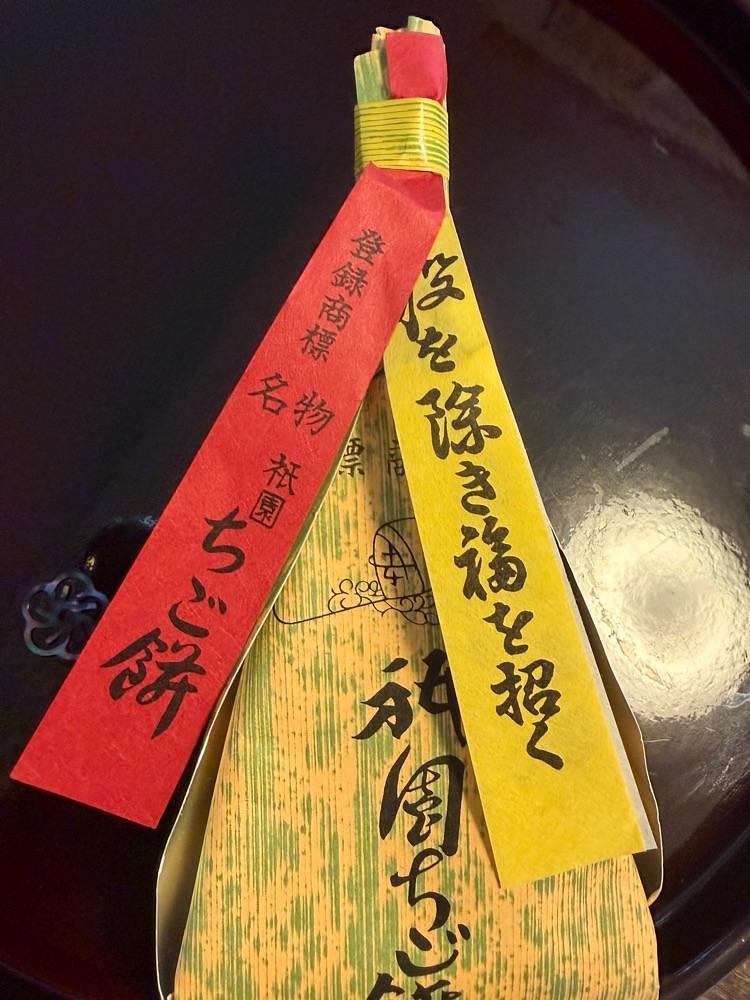 登録商標
名物
祇園
ちご餅
を除き福を招く
標
祇園ちご